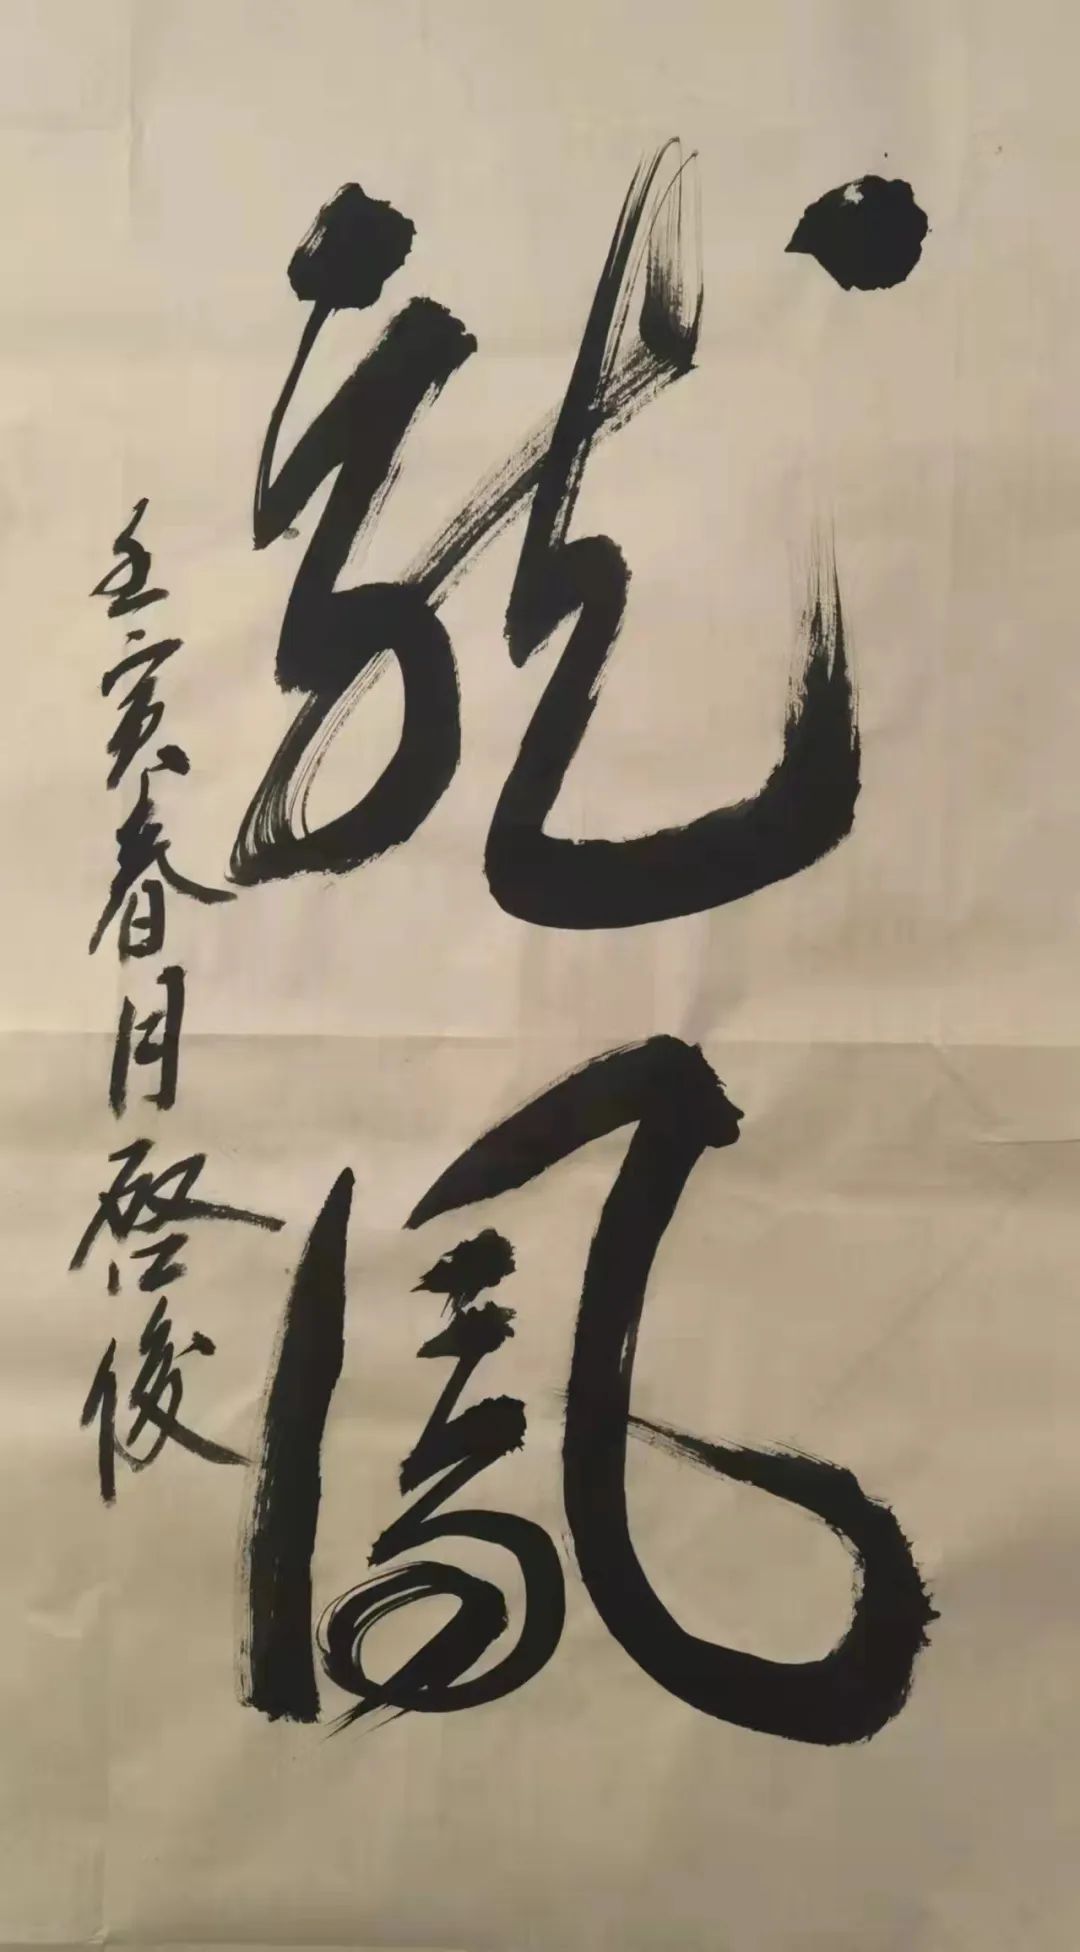 龍鳳
壬寅春月啓俊